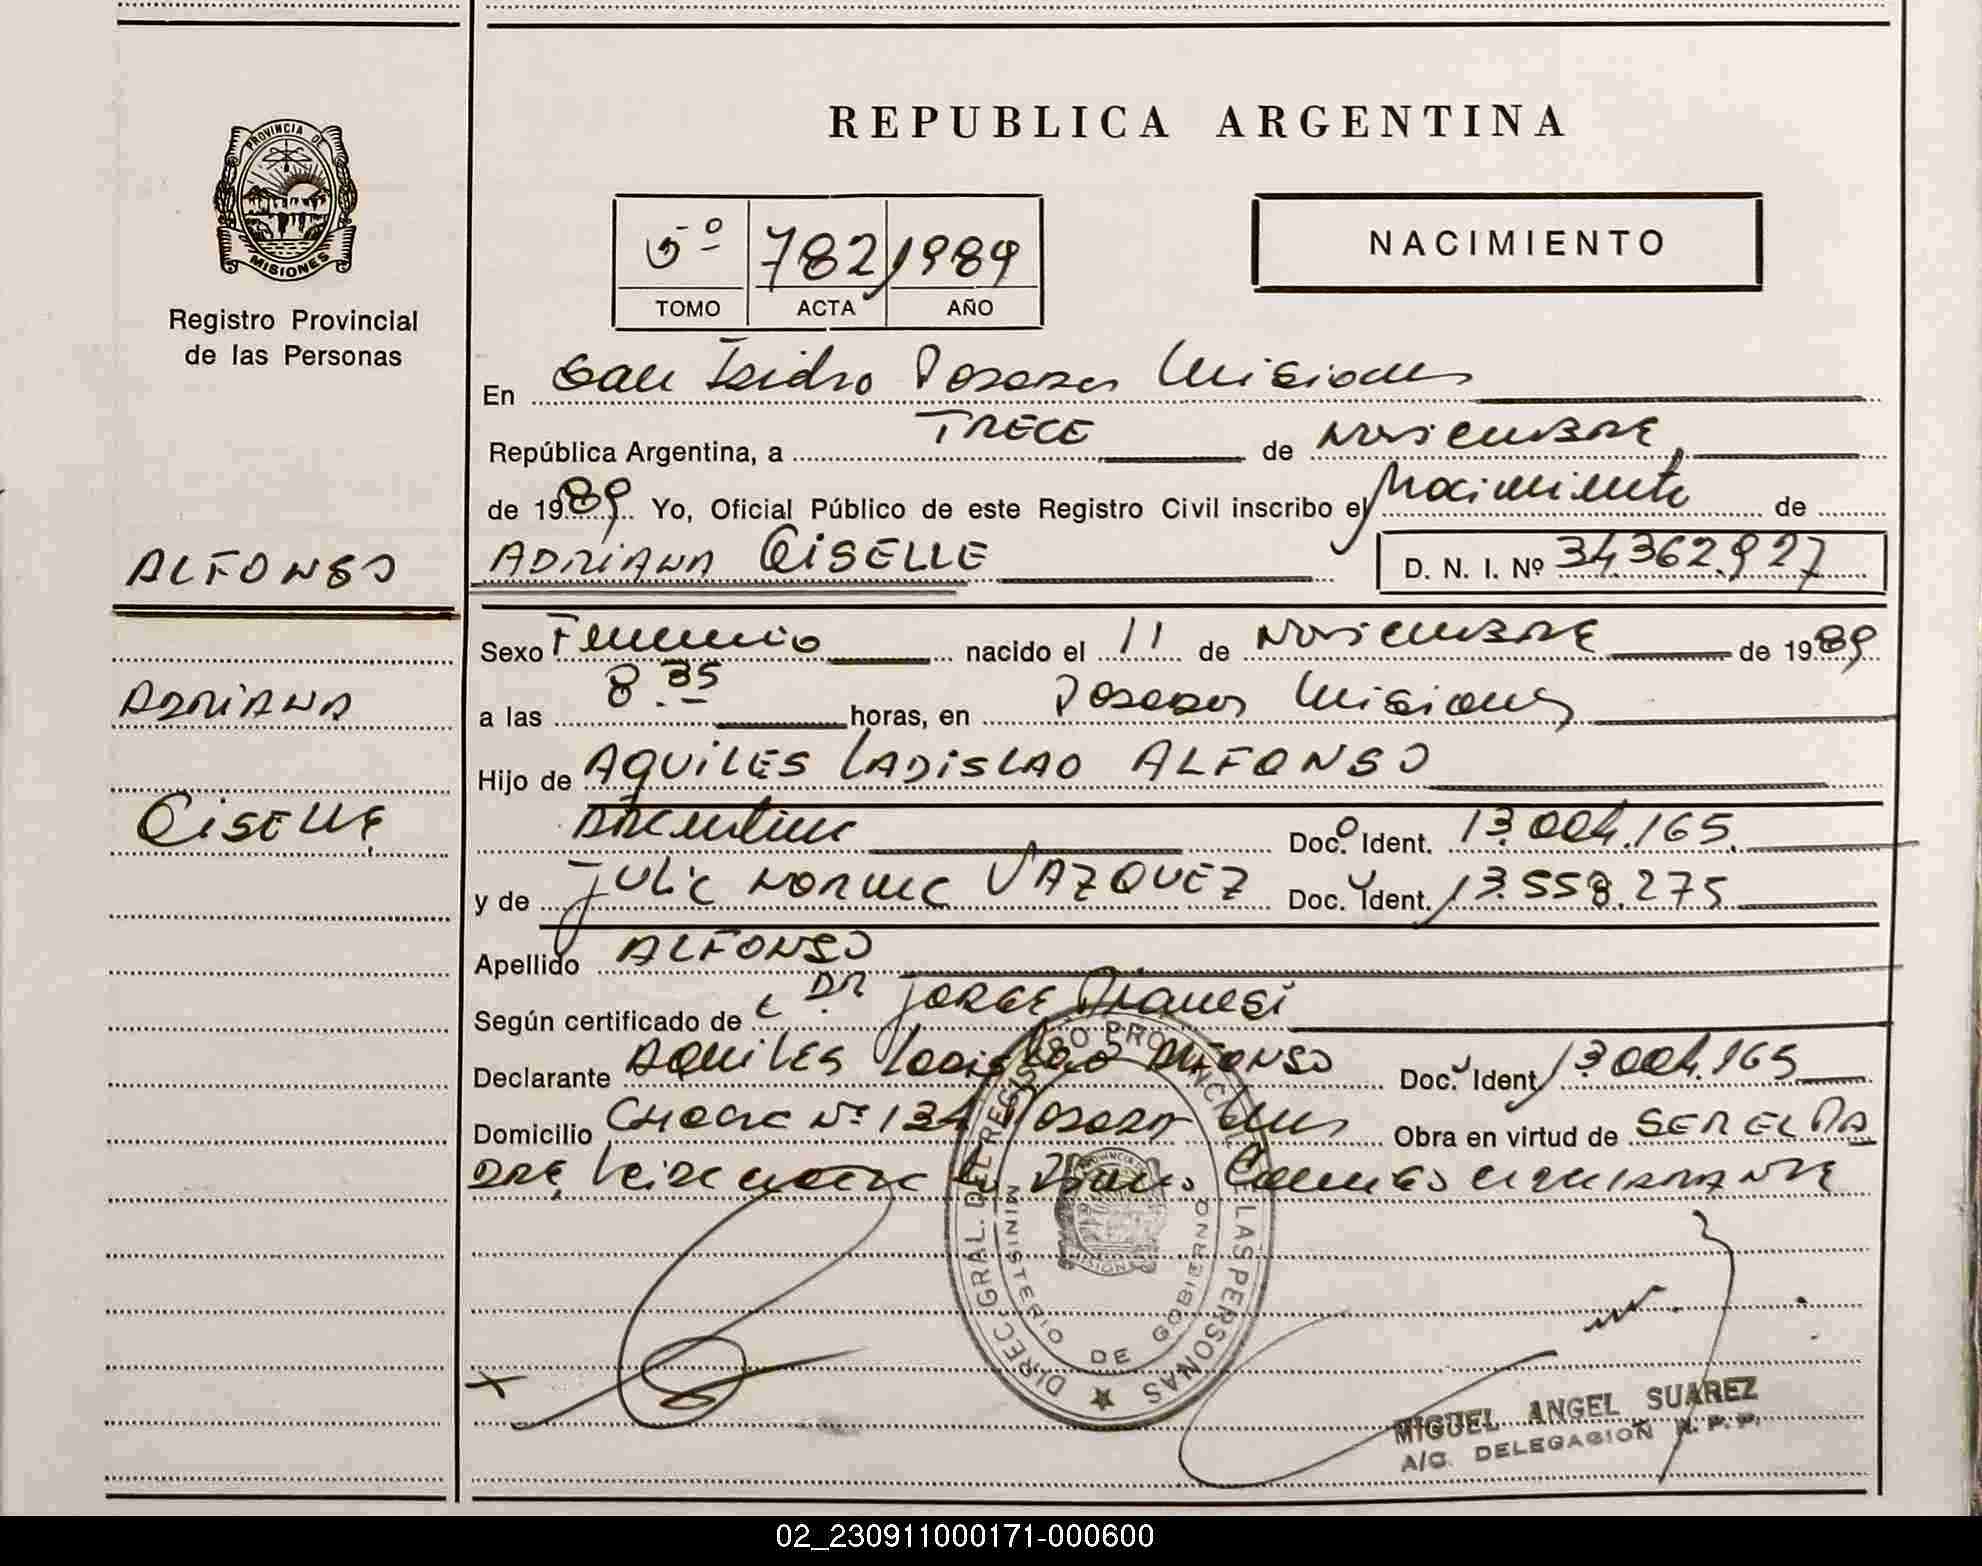 REPUBLICA ARGENTINA
PROVINCIA DE
MISIONES
Registro Provincial
de las Personas
5º 782 1989
TOMO ACTA AÑO
NACIMIENTO
En San Isidro Posadas Misiones
República Argentina, a TRECE de Noviembre
de 1989 Yo, Oficial Público de este Registro Civil inscribo el Nacimiento de
ALFONSO
ADRIANA GISELLE D. N. I. Nº 34.362.927
Sexo Femenino nacido el 11 de Noviembre de 1989
ADRIANA
a las 8.35 horas, en Posadas Misiones
Hijo de AQUILES LADISLAO ALFONSO
GISELLE
Argentino Doc. Ident. 13.004.165.
y de Julia Norma VAZQUEZ Doc. Ident. 13.558.275
Apellido ALFONSO
Según certificado de DR JORGE
Declarante AQUILES Ladislao ALFONSO Doc. Ident. 13.004.165
Domicilio Chacra Nº 134 Posadas Mnes Obra en virtud de SER EL PA
DRE
DIREC. GRAL. DEL REGISTRO PROVINCIAL DE LAS PERSONAS
MINISTERIO DE GOBIERNO
MIGUEL ANGEL SUAREZ
A/C. DELEGACION R. P. P.
02_230911000171-000600